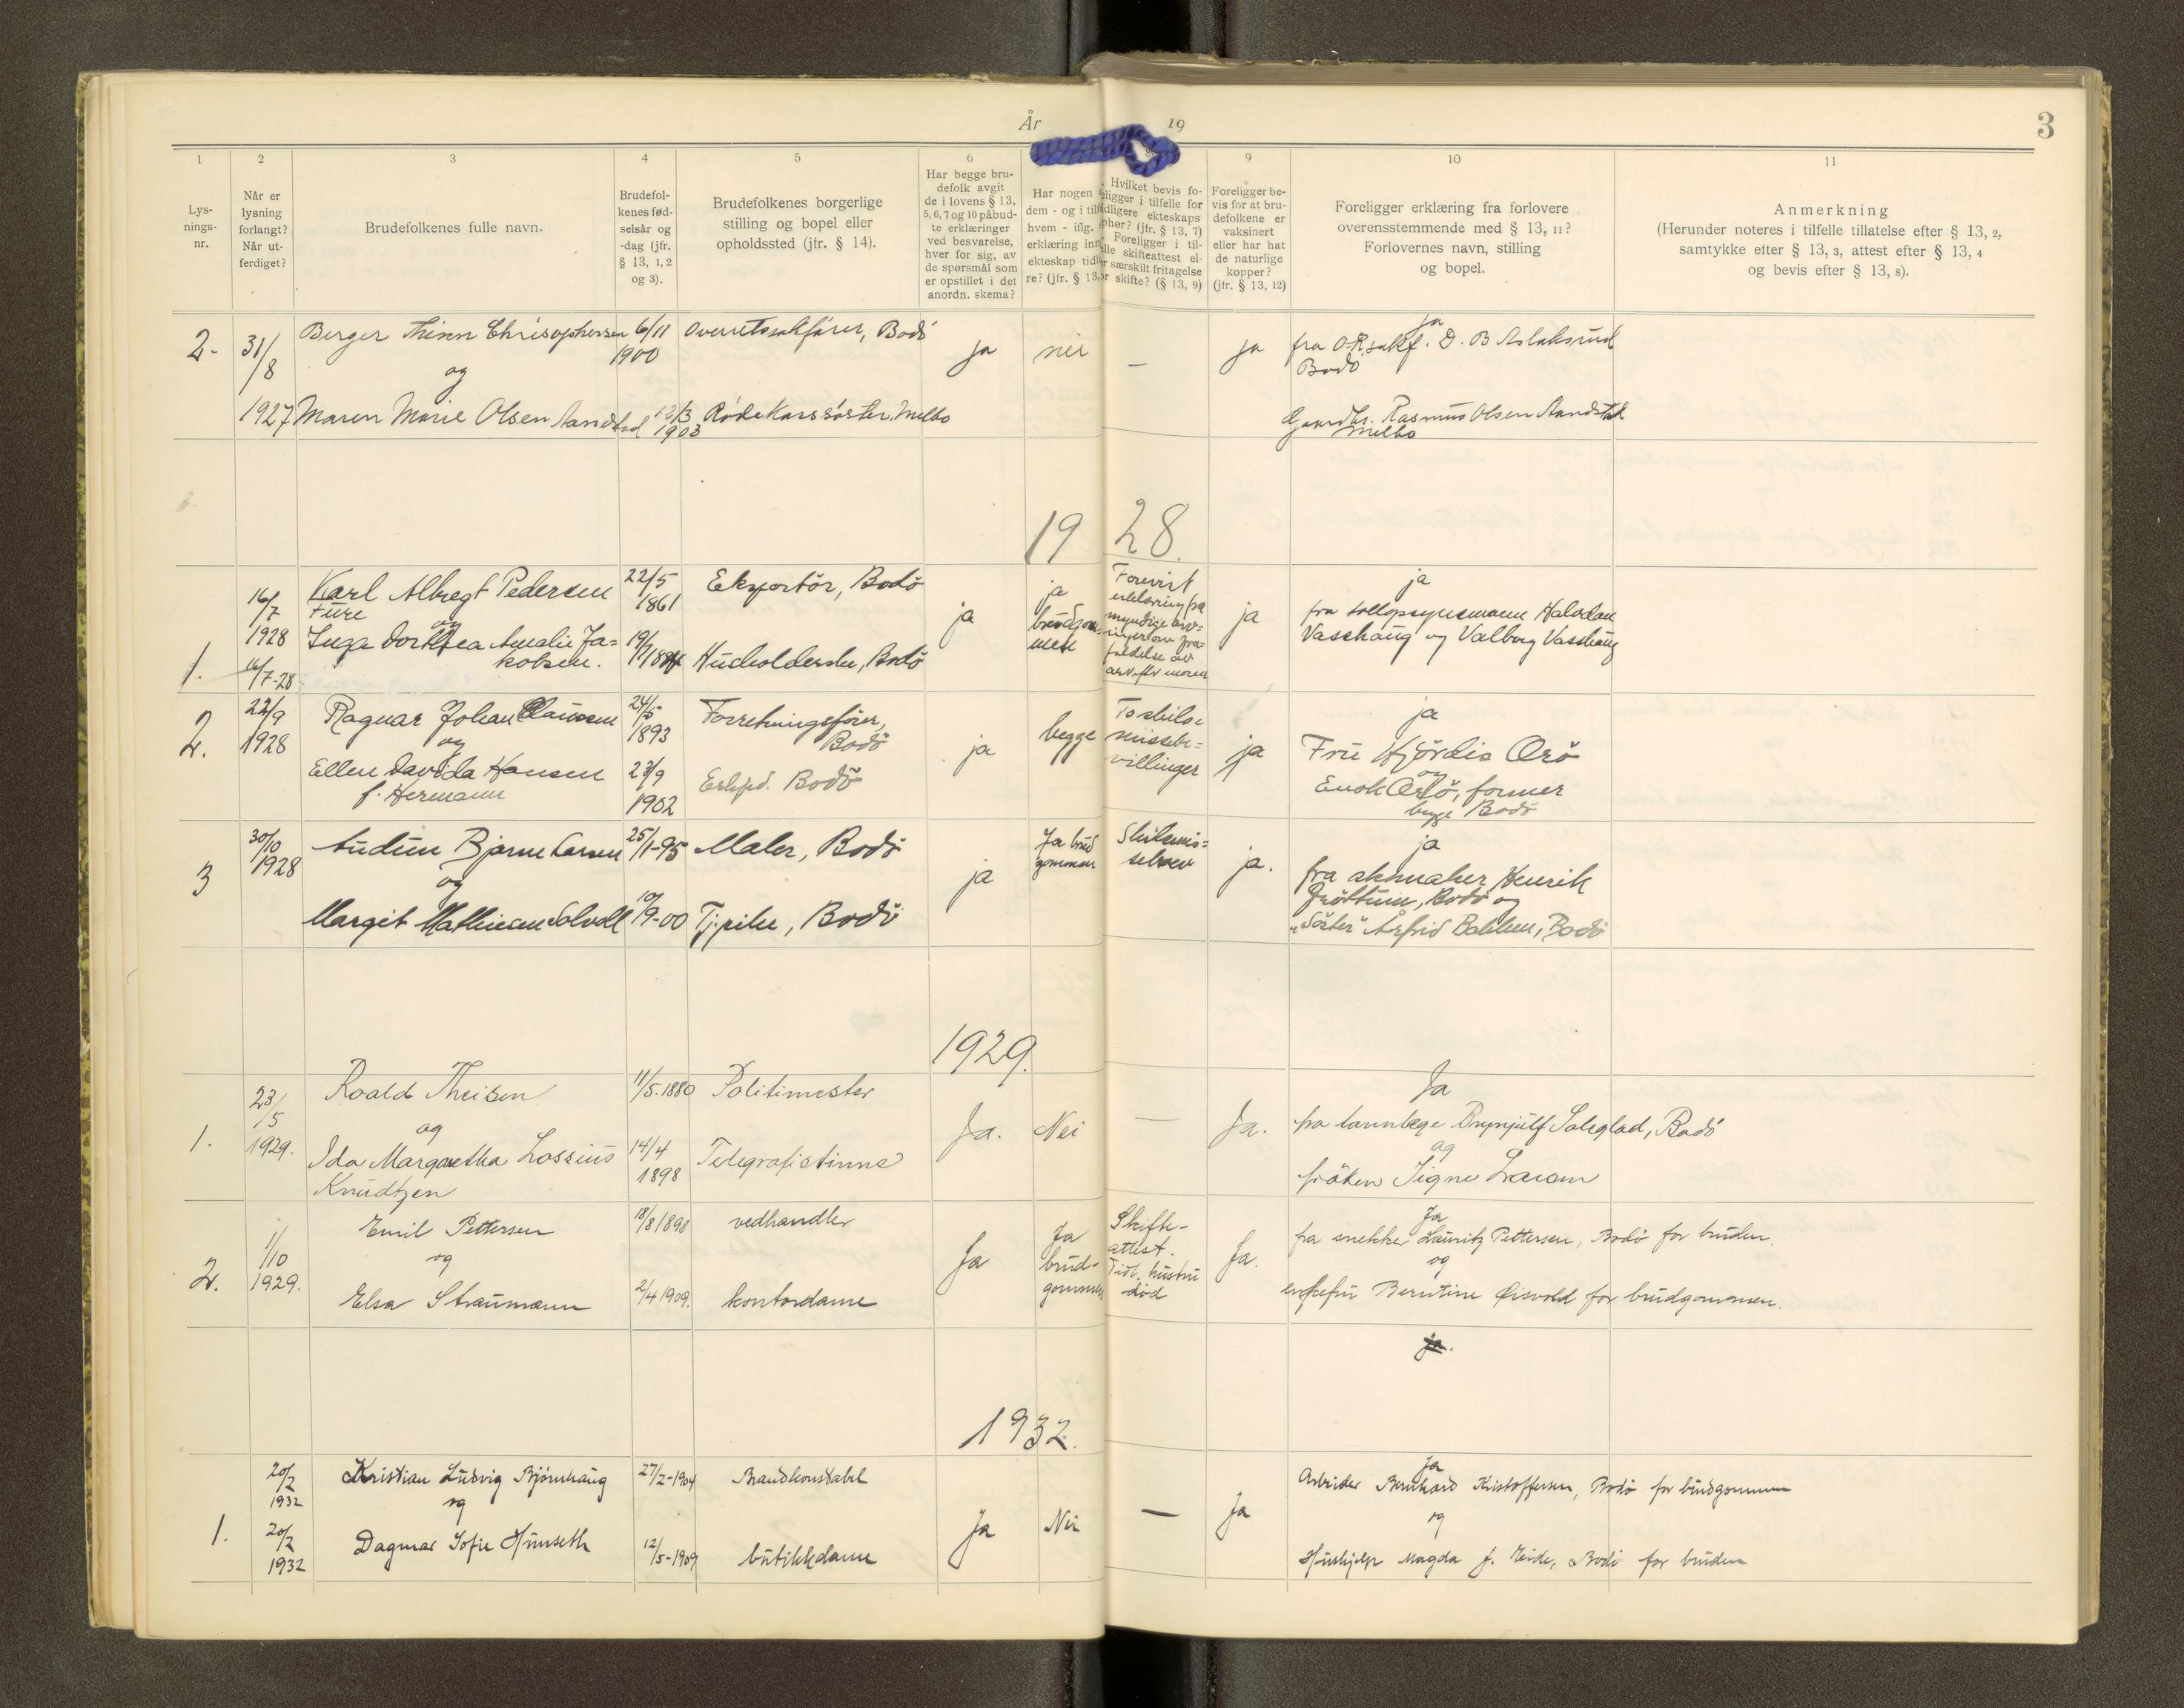 År 19
3
1
2
3
4
5
6
9
10
11
Lys-
nings-
nr.
Når er
lysning
forlangt?
Når ut-
ferdiget?
Brudefolkenes fulle navn.
Brudefol-
kenes fød-
selsår og
-dag (jfr.
§ 13, 1, 2
og 3).
Brudefolkenes borgerlige
stilling og bopel eller
opholdssted (jfr. § 14).
Har begge bru-
defolk avgit
de i lovens § 13,
5, 6, 7 og 10 påbud-
te erklæringer
ved besvarelse,
hver for sig, av
de spørsmål som
er opstillet i det
anordn. skema?
Har nogen
dem - og i tilf
hvem - iflg.
erklæring inn
ekteskap tid
re? (jfr. § 13,
Hvilket bevis fo-
religger i tilfelle for
tidligere ekteskaps
ophør? (jfr. § 13, 7)
Foreligger i til-
felle skifteattest el-
ler særskilt fritagelse
for skifte? (§ 13, 9)
Foreligger be-
vis for at bru-
defolkene er
vaksinert
eller har hat
de naturlige
kopper?
(jfr. § 13, 12)
Foreligger erklæring fra forlovere
overensstemmende med § 13, 11?
Forlovernes navn, stilling
og bopel.
Anmerkning
(Herunder noteres i tilfelle tillatelse efter § 13, 2,
samtykke efter § 13, 3, attest efter § 13, 4
og bevis efter § 13, 8).
2. 31/8 1927
Berger Thisen Chrisophersen 6/11 1900 Overretssakfører, Bodö
og
Maren Marie Olsen Sandstad 12/3 1903 Røde Korssöster, Melbo
ja nei — ja
ja
fra O.R.sakf. D. B Aslaksrud
Bodö
Gaardbr. Rasmus Olsen Sandstad
Melbo
1928.
1. 16/7 1928
16/7-28
Karl Albregt Pedersen
Füre
og
Inga Dorthea Amalie Ja-
kobsen.
22/5 1861 Eksportör, Bodö
19/7 Husholderske, Bodö
ja
ja
brudgom-
men
Forevist
erklæring fra
myndige arv-
inger om fra-
faldelse av
arv efter moren
ja
ja
fra tollopsynsmann Halvdan
Vasshaug og Valborg Vasshaug
2. 22/9 1928
Ragnar Johan Claussen
og
Ellen Davida Hansen
f. Hermann
24/5 1893 Forretningsfører,
Bodö
23/9 1902 Eksped. Bodö
ja
begge
To skils-
missebe-
villinger
ja
ja
Fru Hjördis Orö
og
Enok Orö, former
begge Bodö
3 30/10 1928
Audun Bjarne Larsen 25/1-95 Maler, Bodö
og
Margit Mathiesen Solvoll 10/9-00 Tj.pike, Bodö
ja
Ja brud
gommen
Skilsmis-
sebrev
ja.
ja
fra skomaker Henrik
Gröttum, Bodö og
"Söster" Astrid Bakken, Bodö
1929.
1. 23/5 1929.
Roald Theisen 11/5.1880 Politimester
og
Ida Margaretha Lossius
Knudtzen
14/4 1898 Telegrafistinne
Ja. Nei — Ja.
Ja
fra tannlæge Brynjulf Soleglad, Bodö
og
fröken Signe Larsen
2. 1/10 1929.
Emil Pettersen 18/8 1898 vedhandler
og
Elsa Straumann 2/4 1909. kontordame
Ja
Ja
brud-
gommen
Skifte-
attest.
Tidl. hustru
død
Ja.
Ja
fra snekker Lauritz Pettersen, Bodö for bruden.
og
enkefru Berntine Øisvold for brudgommen.
ja.
1932.
1. 20/2 1932
20/2 1932
Kristian Ludvig Bjørnhaug 27/2-1904 Brandkonstabel
og
Dagmar Sofie Hunseth 12/5-1909 butikkdame
Ja Nei — Ja
Ja
Arbeider Bernhard Kristoffersen, Bodö for brudgommen
og
Hushjelp Magda J. Eide, Bodö for bruden